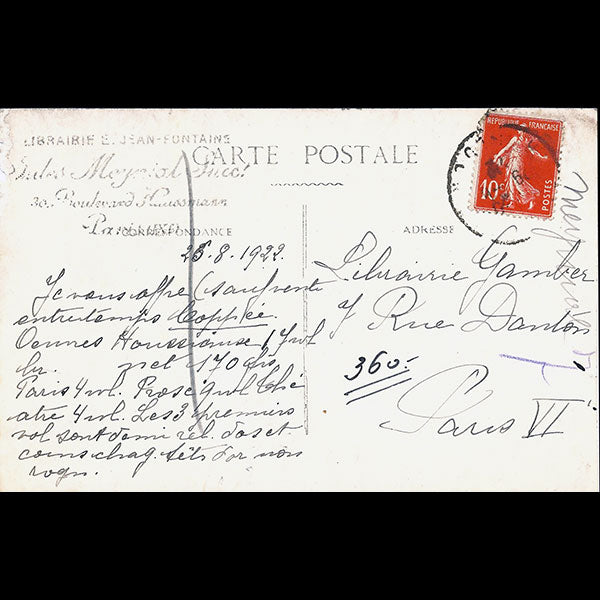 LIBRAIRIE E. JEAN-FONTAINE
Jules Meynial Succr
30, Boulevard Haussmann
Paris
CARTE POSTALE
CORRESPONDANCE
ADRESSE
RÉPUBLIQUE FRANÇAISE
10c
POSTES
25.8.1922.
Je vous offre (sauf vente
entretemps Coppée.
Oeuvres Houssiaux 17 vol
br. net 170 frs
Paris 4 vol. Prose 9 vol Thé
atre 4 vol. Les 3 premiers
vol sont demi rel. dos et
coins chag. têts dor non
rogn.
Librairie Gamber
7 Rue Danton
360.-
Paris VI